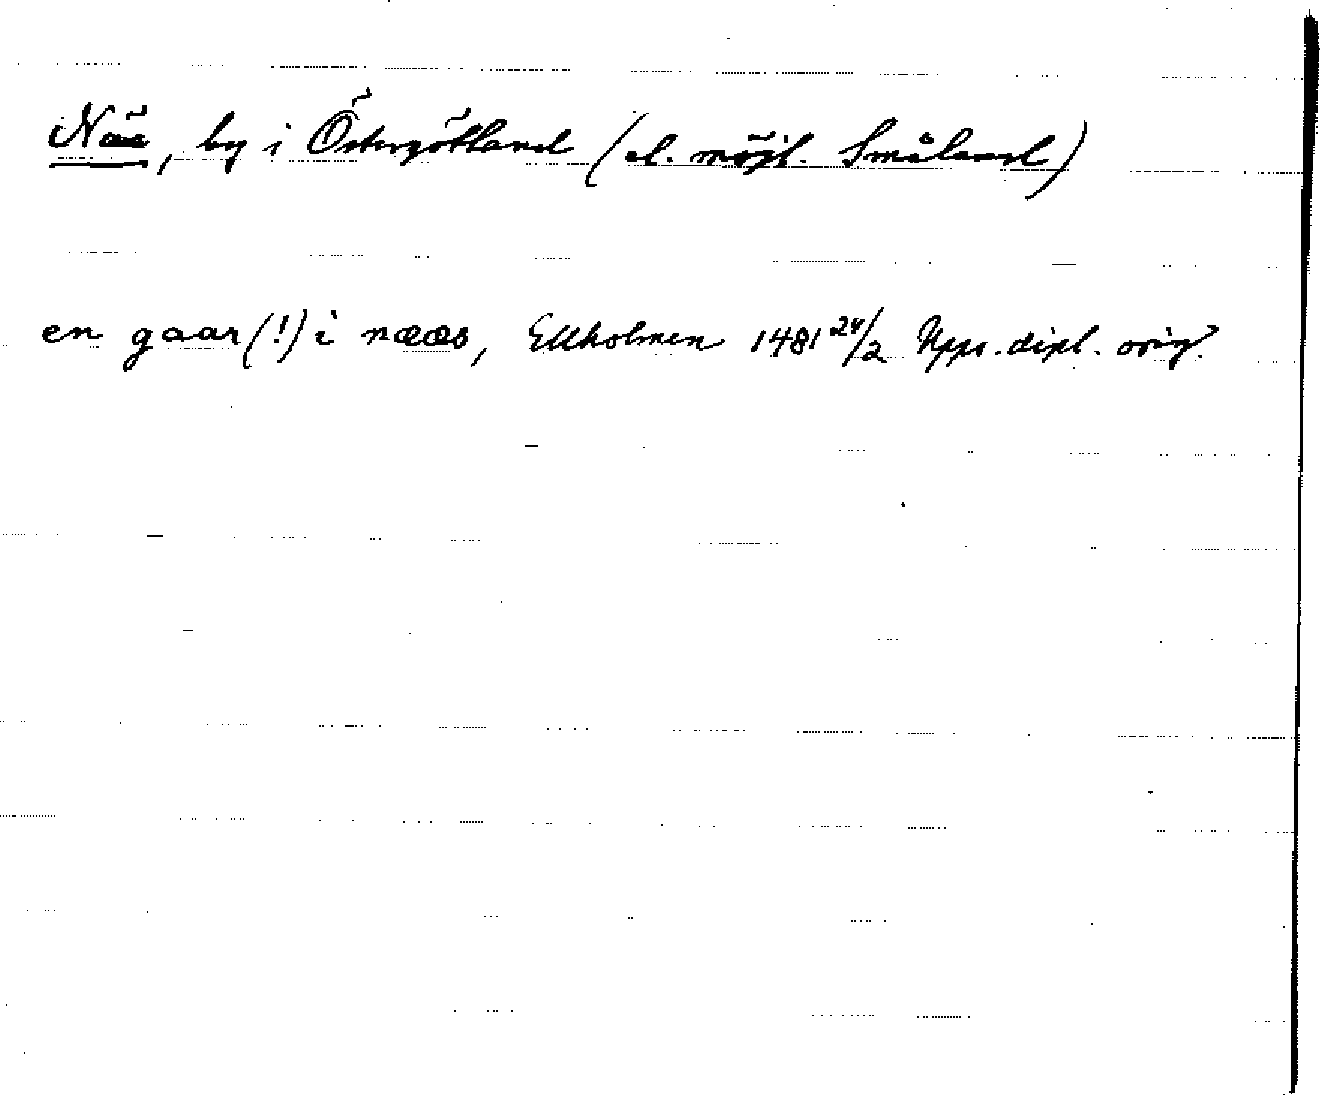 Näs, by i Östergötland (el. möjl. Småland)
en gaar(!) i nææs, Ekholmen 1481 24/2 Upps. dipl. orig.